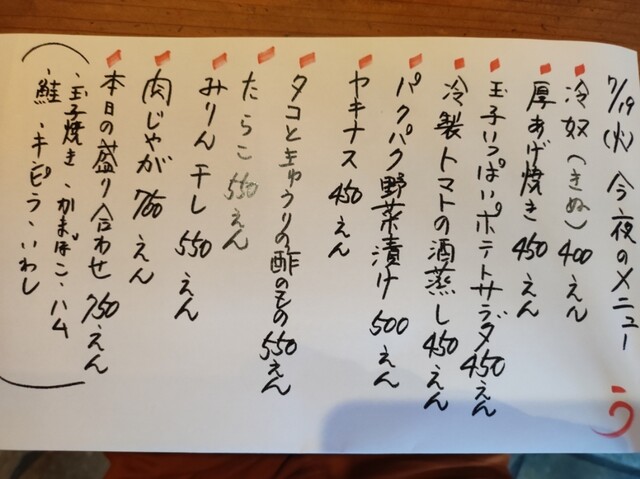 7/19(火) 今夜のメニュー
冷奴(きぬ) 400えん
厚あげ焼き 450えん
玉子いっぱいポテトサラダ 450えん
冷製トマトの酒蒸し 450えん
パクパク野菜漬け 500えん
ヤキナス 450えん
タコときゅうりの酢のもの 550えん
たらこ 550えん
みりん干し 550えん
肉じゃが 700えん
本日の盛り合わせ 750えん
・玉子焼き・かまぼこ・ハム
・鮭・キンピラ・いわし
う